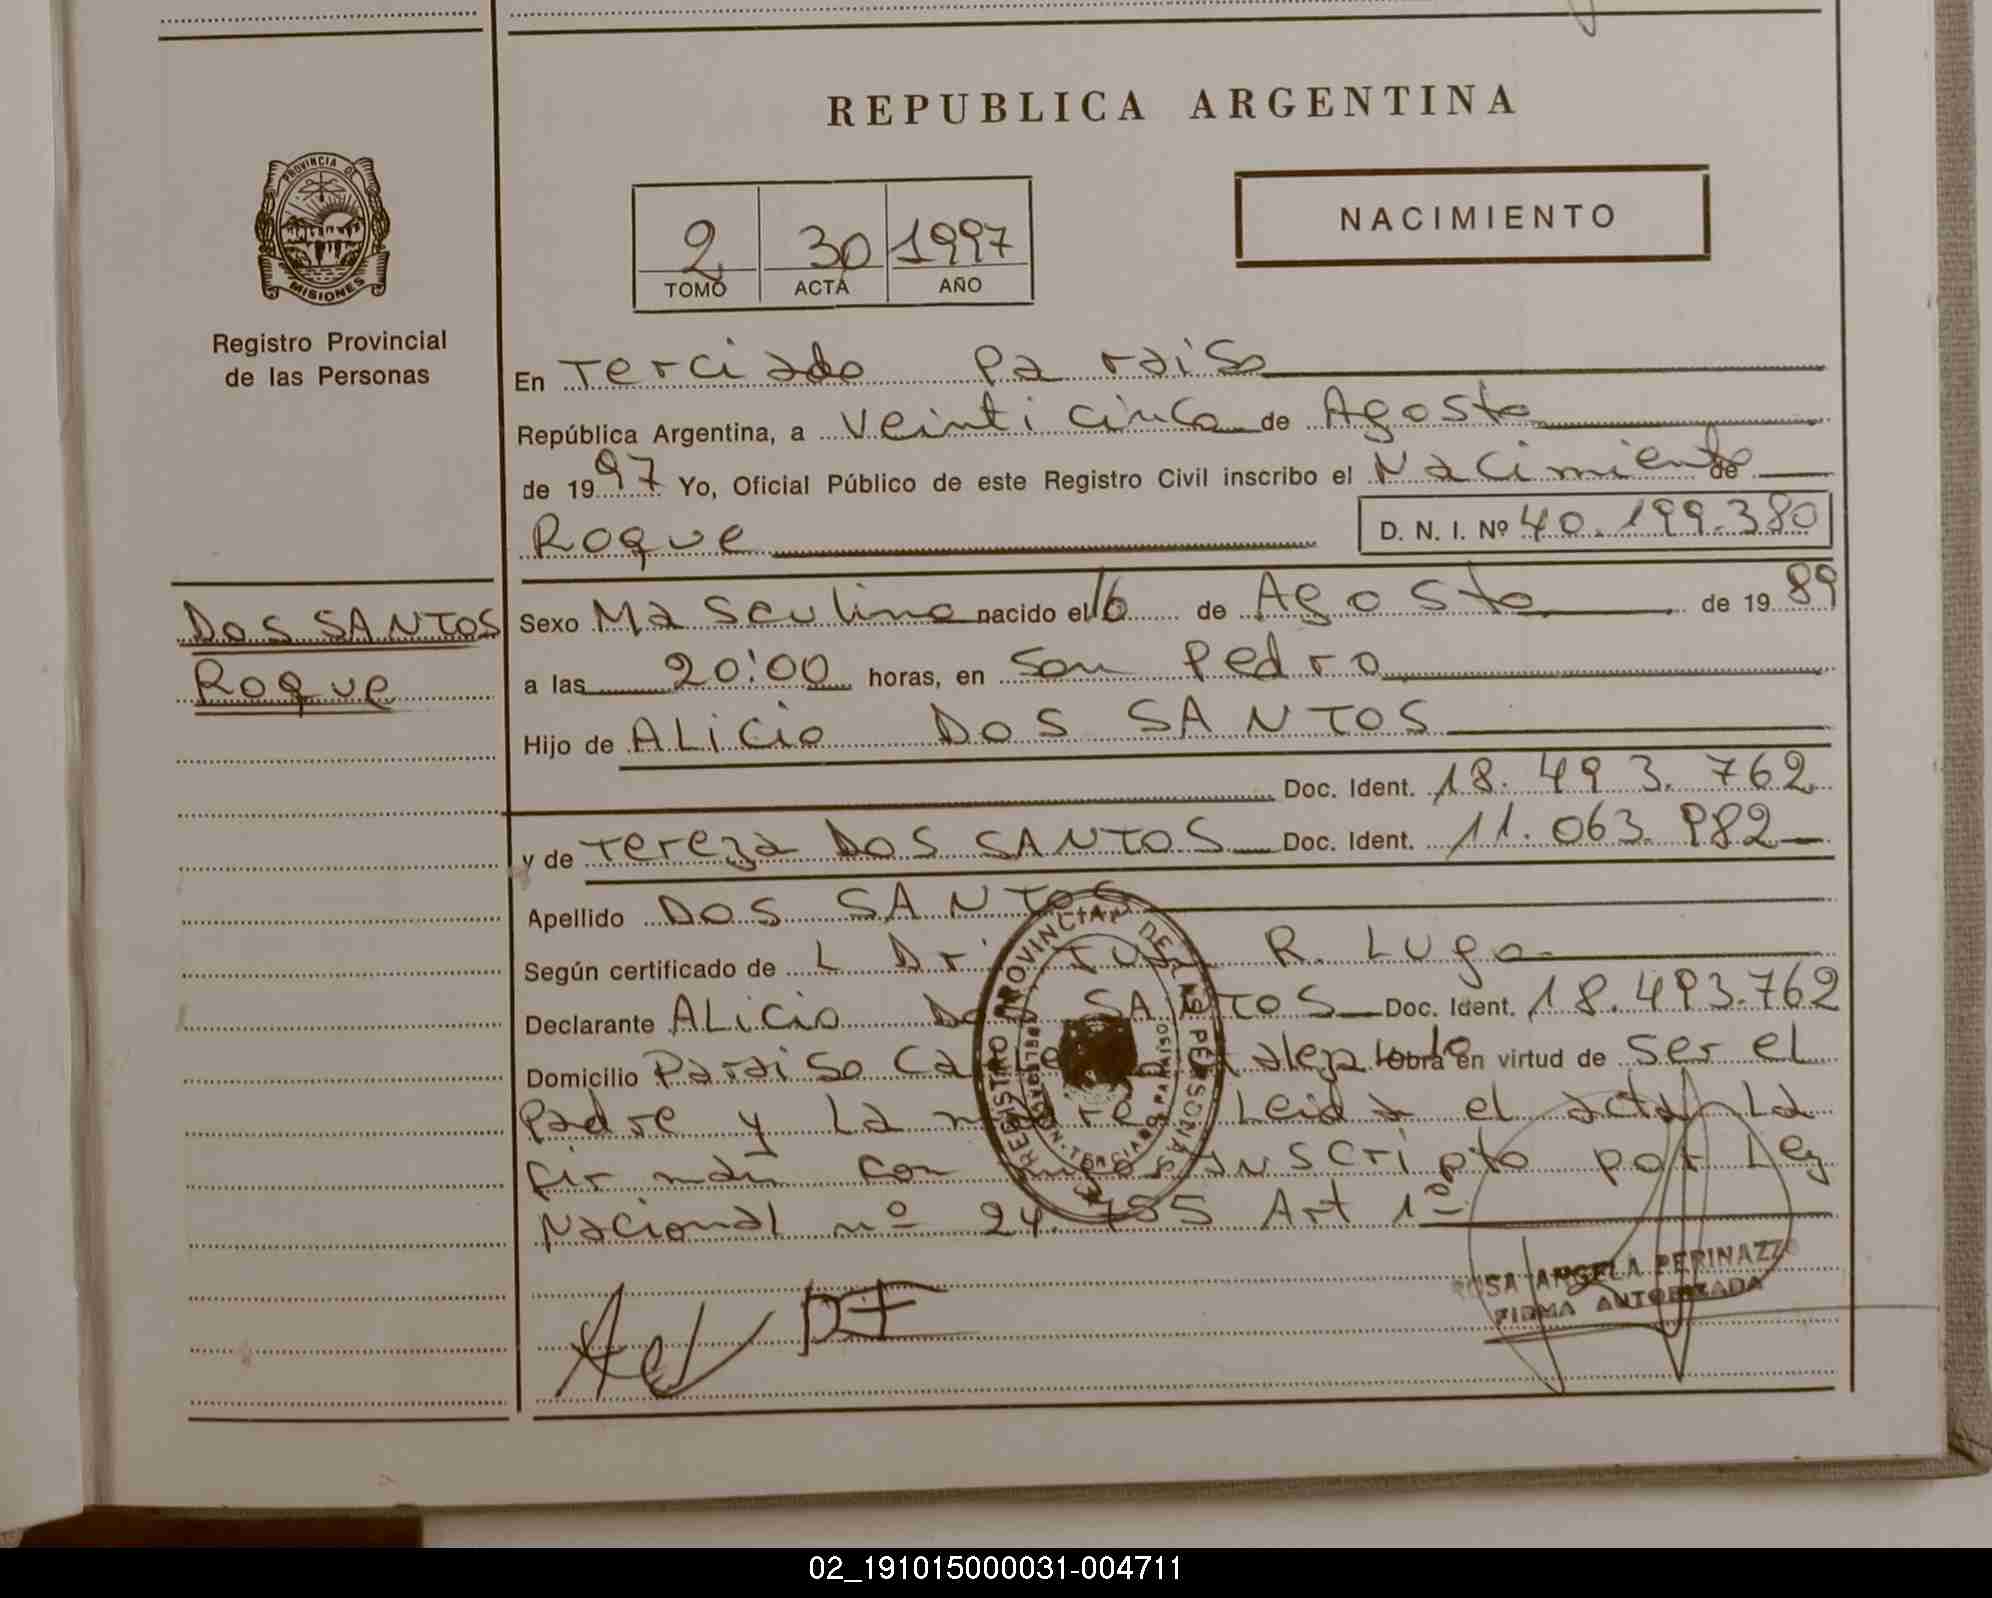 REPUBLICA ARGENTINA
PROVINCIA DE
MISIONES
Registro Provincial
de las Personas
NACIMIENTO
2 30 1997
TOMO ACTA AÑO
En Terciado Paraiso
República Argentina, a Veinti cinco de Agosto
de 1997 Yo, Oficial Público de este Registro Civil inscribo el Nacimiento de
Roque D. N. I. Nº 40.199.380
DOS SANTOS
Roque
Sexo Masculino nacido el 16 de Agosto de 1989
a las 20:00 horas, en San Pedro
Hijo de ALicio DOS SANTOS
Doc. Ident. 18.493.762
y de Tereza DOS SANTOS Doc. Ident. 11.063.982
Apellido DOS SANTOS
Según certificado de L Dr R. Lugo
Declarante ALicio Dos SANTOS Doc. Ident. 18.493.762
Domicilio Paraiso obra en virtud de ser el
Padre y La madre Leida el acta La
firman con inscripto por Ley
Nacional nº 24.755 Art 1º
REGISTRO PROVINCIAL DE LAS PERSONAS
TERCIADO PARAISO
ROSA ANGELA PERINAZZO
FIRMA AUTORIZADA
02_191015000031-004711